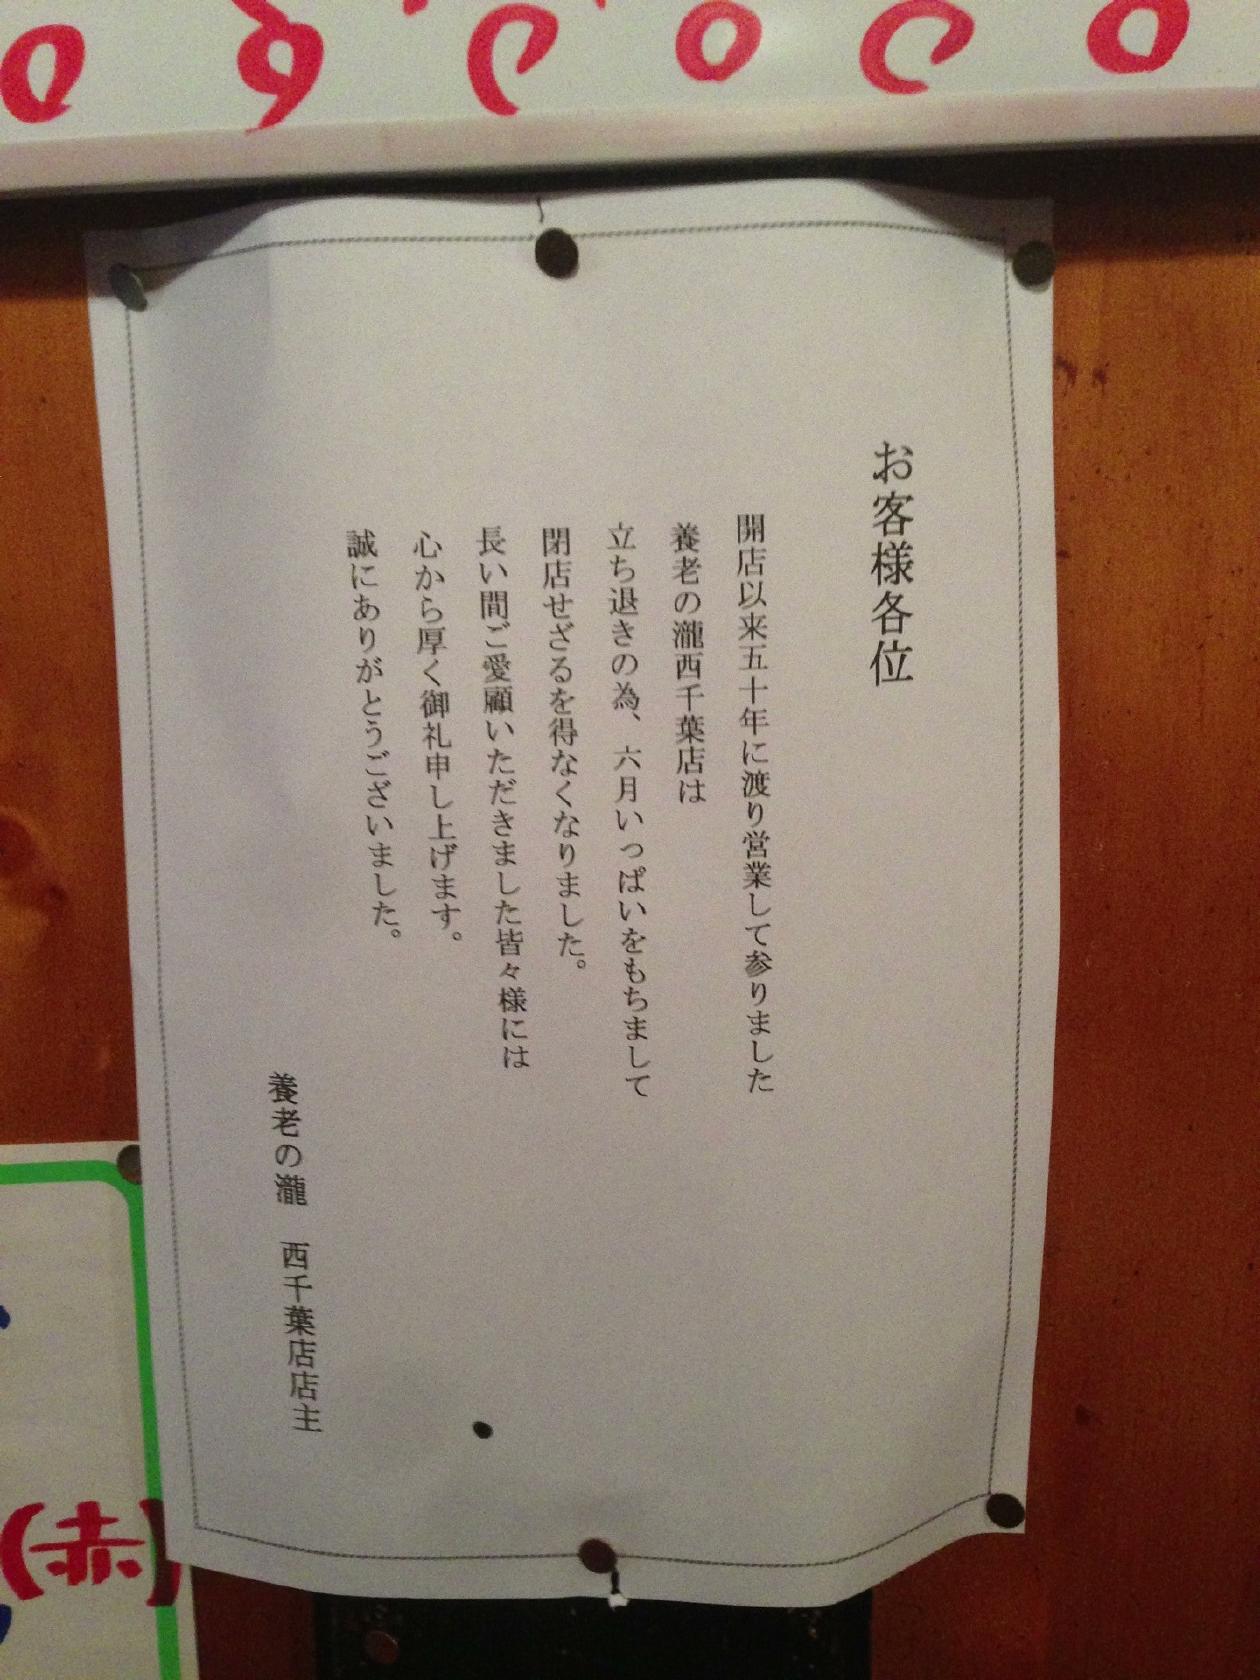 お客様各位
開店以来五十年に渡り営業して参りました
養老の瀧西千葉店は
立ち退きの為、六月いっぱいをもちまして
閉店せざるを得なくなりました。
長い間ご愛顧いただきました皆々様には
心から厚く御礼申し上げます。
誠にありがとうございました。
養老の瀧　西千葉店店主
(赤)